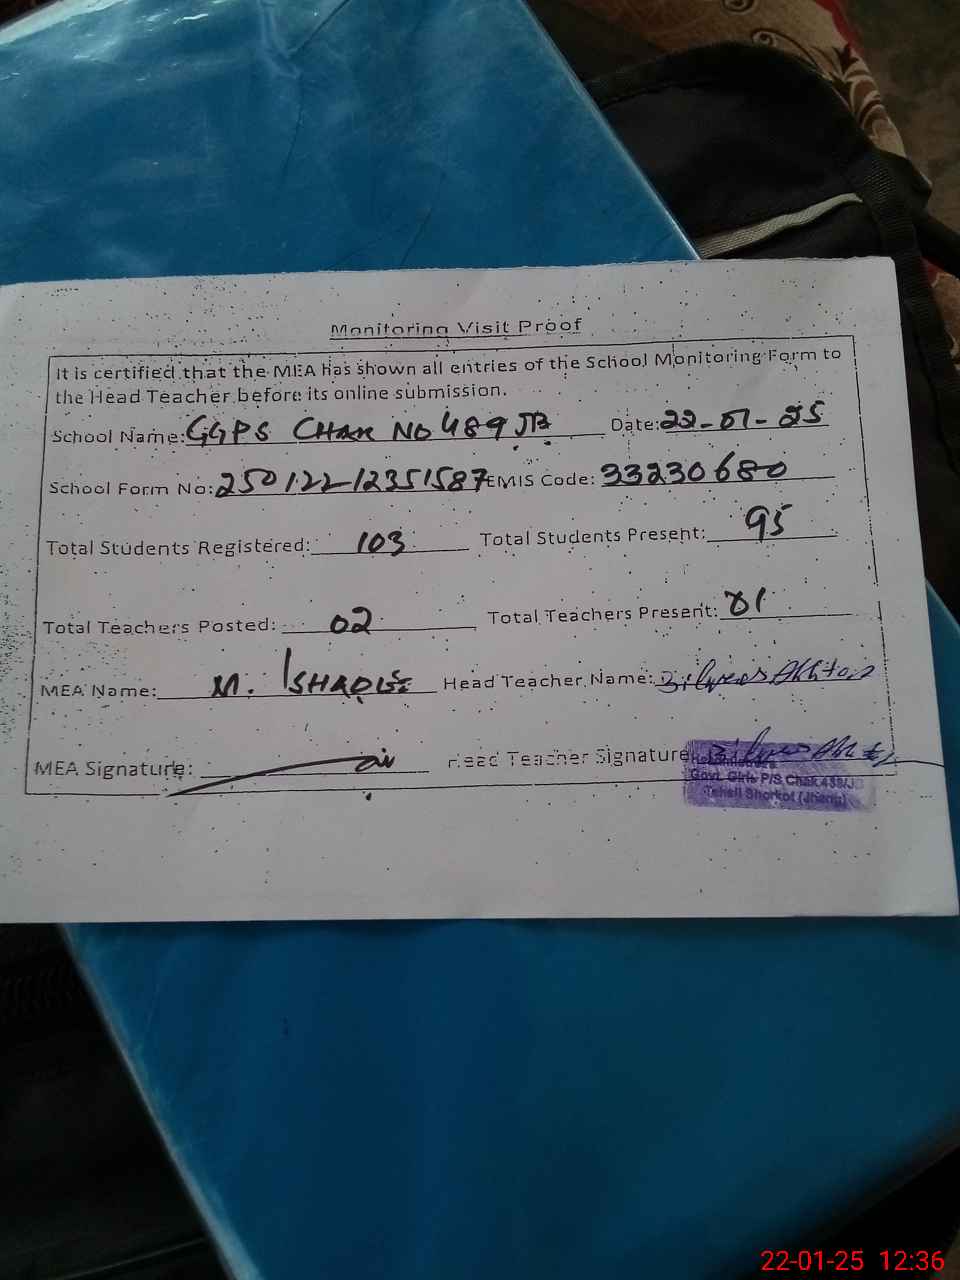 Monitoring Visit Proof
It is certified that the MEA has shown all entries of the School Monitoring Form to
the Head Teacher before its online submission.
School Name: GGPS CHAK NO 489 JB Date: 22-01-25
School Form No: 25012212351587 EMIS Code: 33230680
Total Students Registered: 103 Total Students Present: 95
Total Teachers Posted: 02 Total Teachers Present: 01
MEA Name: M. Head Teacher Name:
MEA Signature: Head Teacher Signature
Govt. Girls P/S Chak
Tehsil Shorkot (Jhang)
22-01-25 12:36